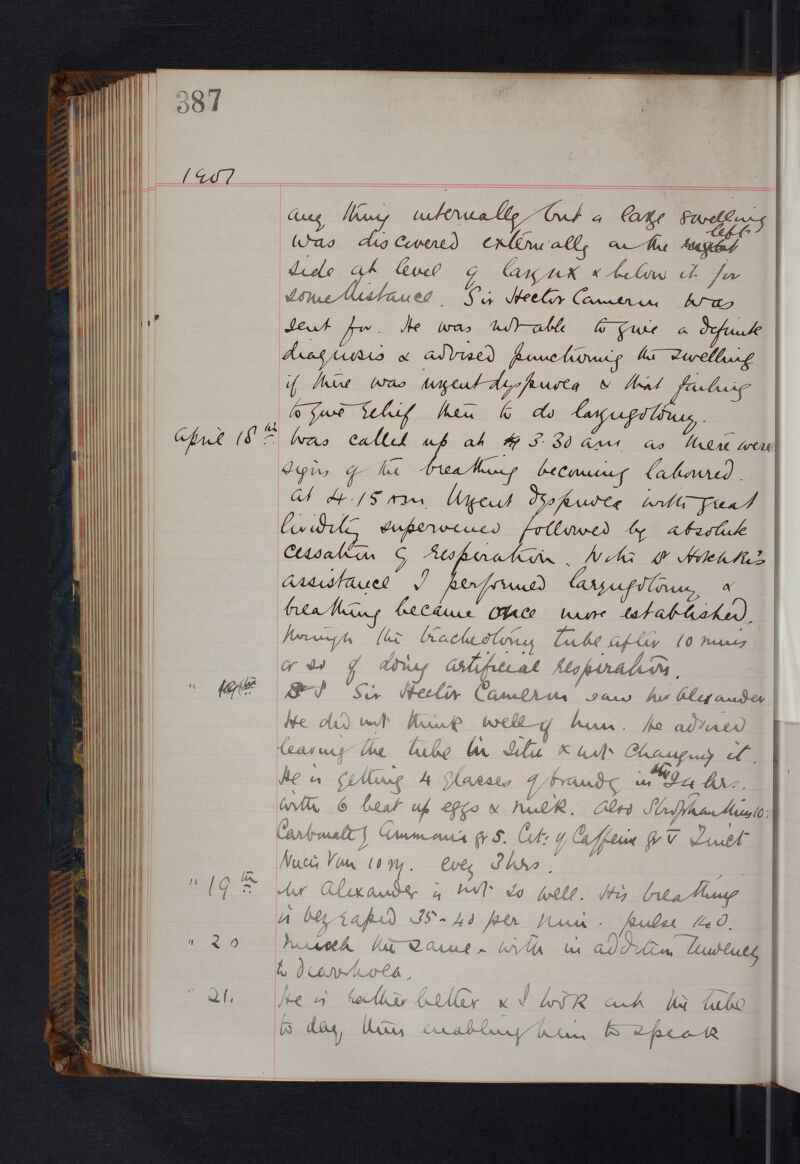 387
1907
any thing internally but a large swelling
was discovered externally on the left
side at level of larynx & below it for
some distance. Sir Hector Cameron was
sent for. He was not able to give a definite
diagnosis & advised punctioning the swelling
if there was urgent dyspnoea & that failing
to give relief then to do laryngotomy.
April 18th Was called up at 3.30 am as there were
signs of the breathing becoming laboured.
at 4.15 am Urgent dyspnoea with great
lividity supervened followed by absolute
cessation of respiration. With Dr
assistance I performed laryngotomy &
breathing became once more established.
through the tracheotomy tube after 10 mins
or so of doing artificial respiration.
" Sir Hector Cameron saw Mr Alexander.
He did not think well of him. He advised
leaving the tube in situ & not changing it.
He is getting 4 glasses of brandy in the 24 hrs.
with 6 beat up eggs & milk. Also Strophanthus 10
Carbonate of Ammonia gr 5. Cit: of Caffeine gr V Tinct
Nucis Vom 10 m. every 3 hrs.
" 19th Mr Alexander is not so well. His breathing
is very rapid 35-40 per min. pulse 140.
" 20 Much the same - with in addition tendency
to diarrhoea.
" 21. He is rather better & I took out the tube
to day, thus enabling him to speak